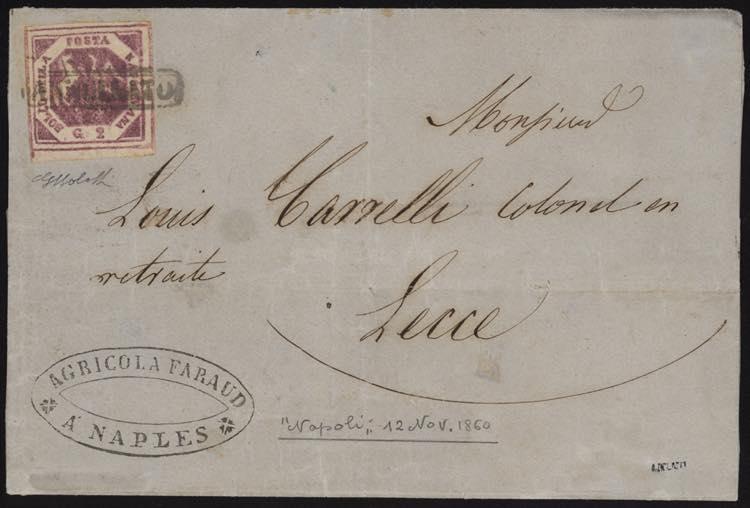 POSTA
NAPOLETANA
BOLLO DELLA
G. 2
ANNULLATO
Monsieur
Louis Carrelli Colonel en
retraite
Lecce
AGRICOLA FARAUD
A NAPLES
"Napoli",: 12 Nov. 1860